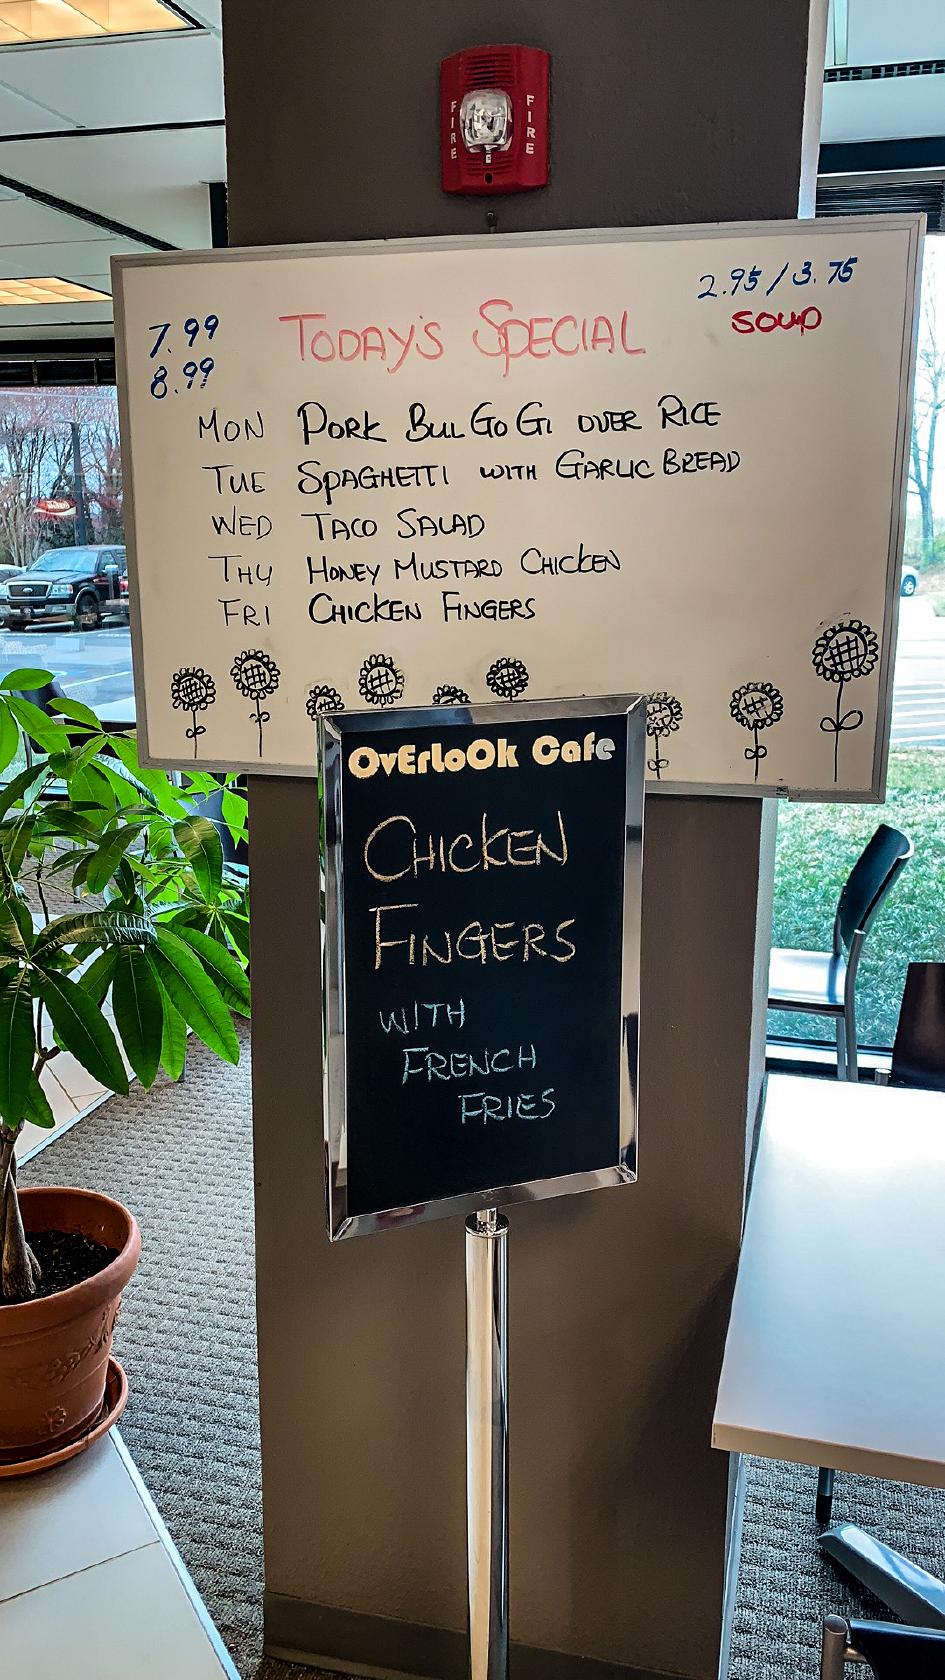 FIRE FIRE
2.95 / 3.75
SOUP
7.99
8.99
TODAY'S SPECIAL
MON PORK BULGOGI OVER RICE
TUE SPAGHETTI WITH GARLIC BREAD
WED TACO SALAD
THU HONEY MUSTARD CHICKEN
FRI CHICKEN FINGERS
OvErLoOk Cafe
CHICKEN
FINGERS
WITH
FRENCH
FRIES